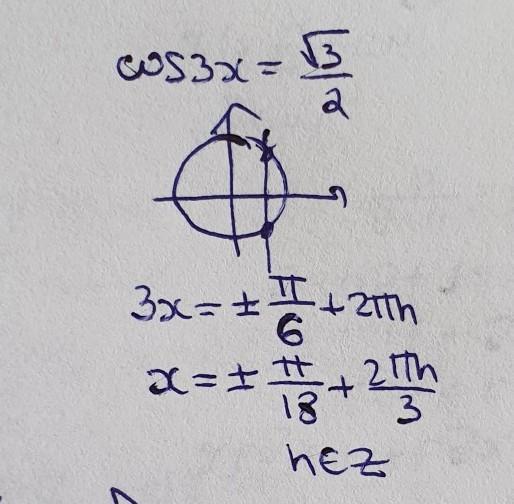 cos3x = √3/2
3x = ± π/6 + 2πn
x = ± π/18 + 2πn/3
n∈Z